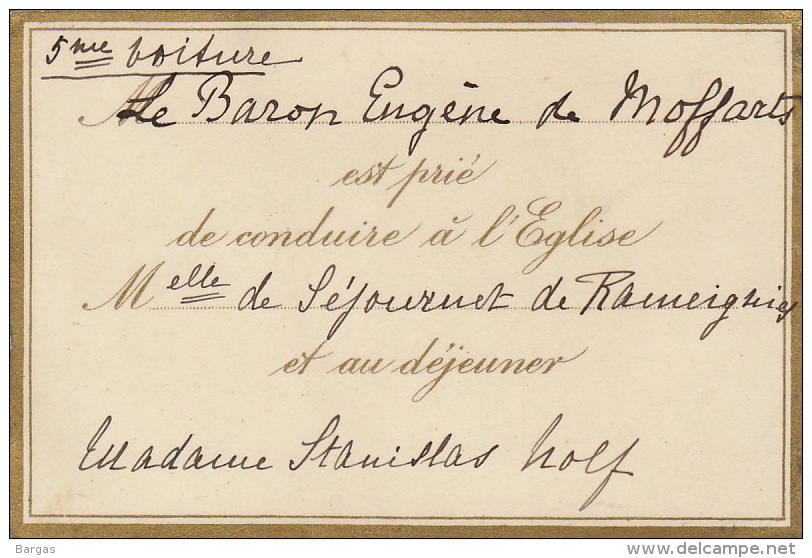 5me voiture
M Le Baron Eugène de Moffarts
est prié
de conduire à l'Eglise
Melle de Séjournet de Rameignies
et au déjeuner
Madame Stanislas Nolf
Bargas
delcampe.net